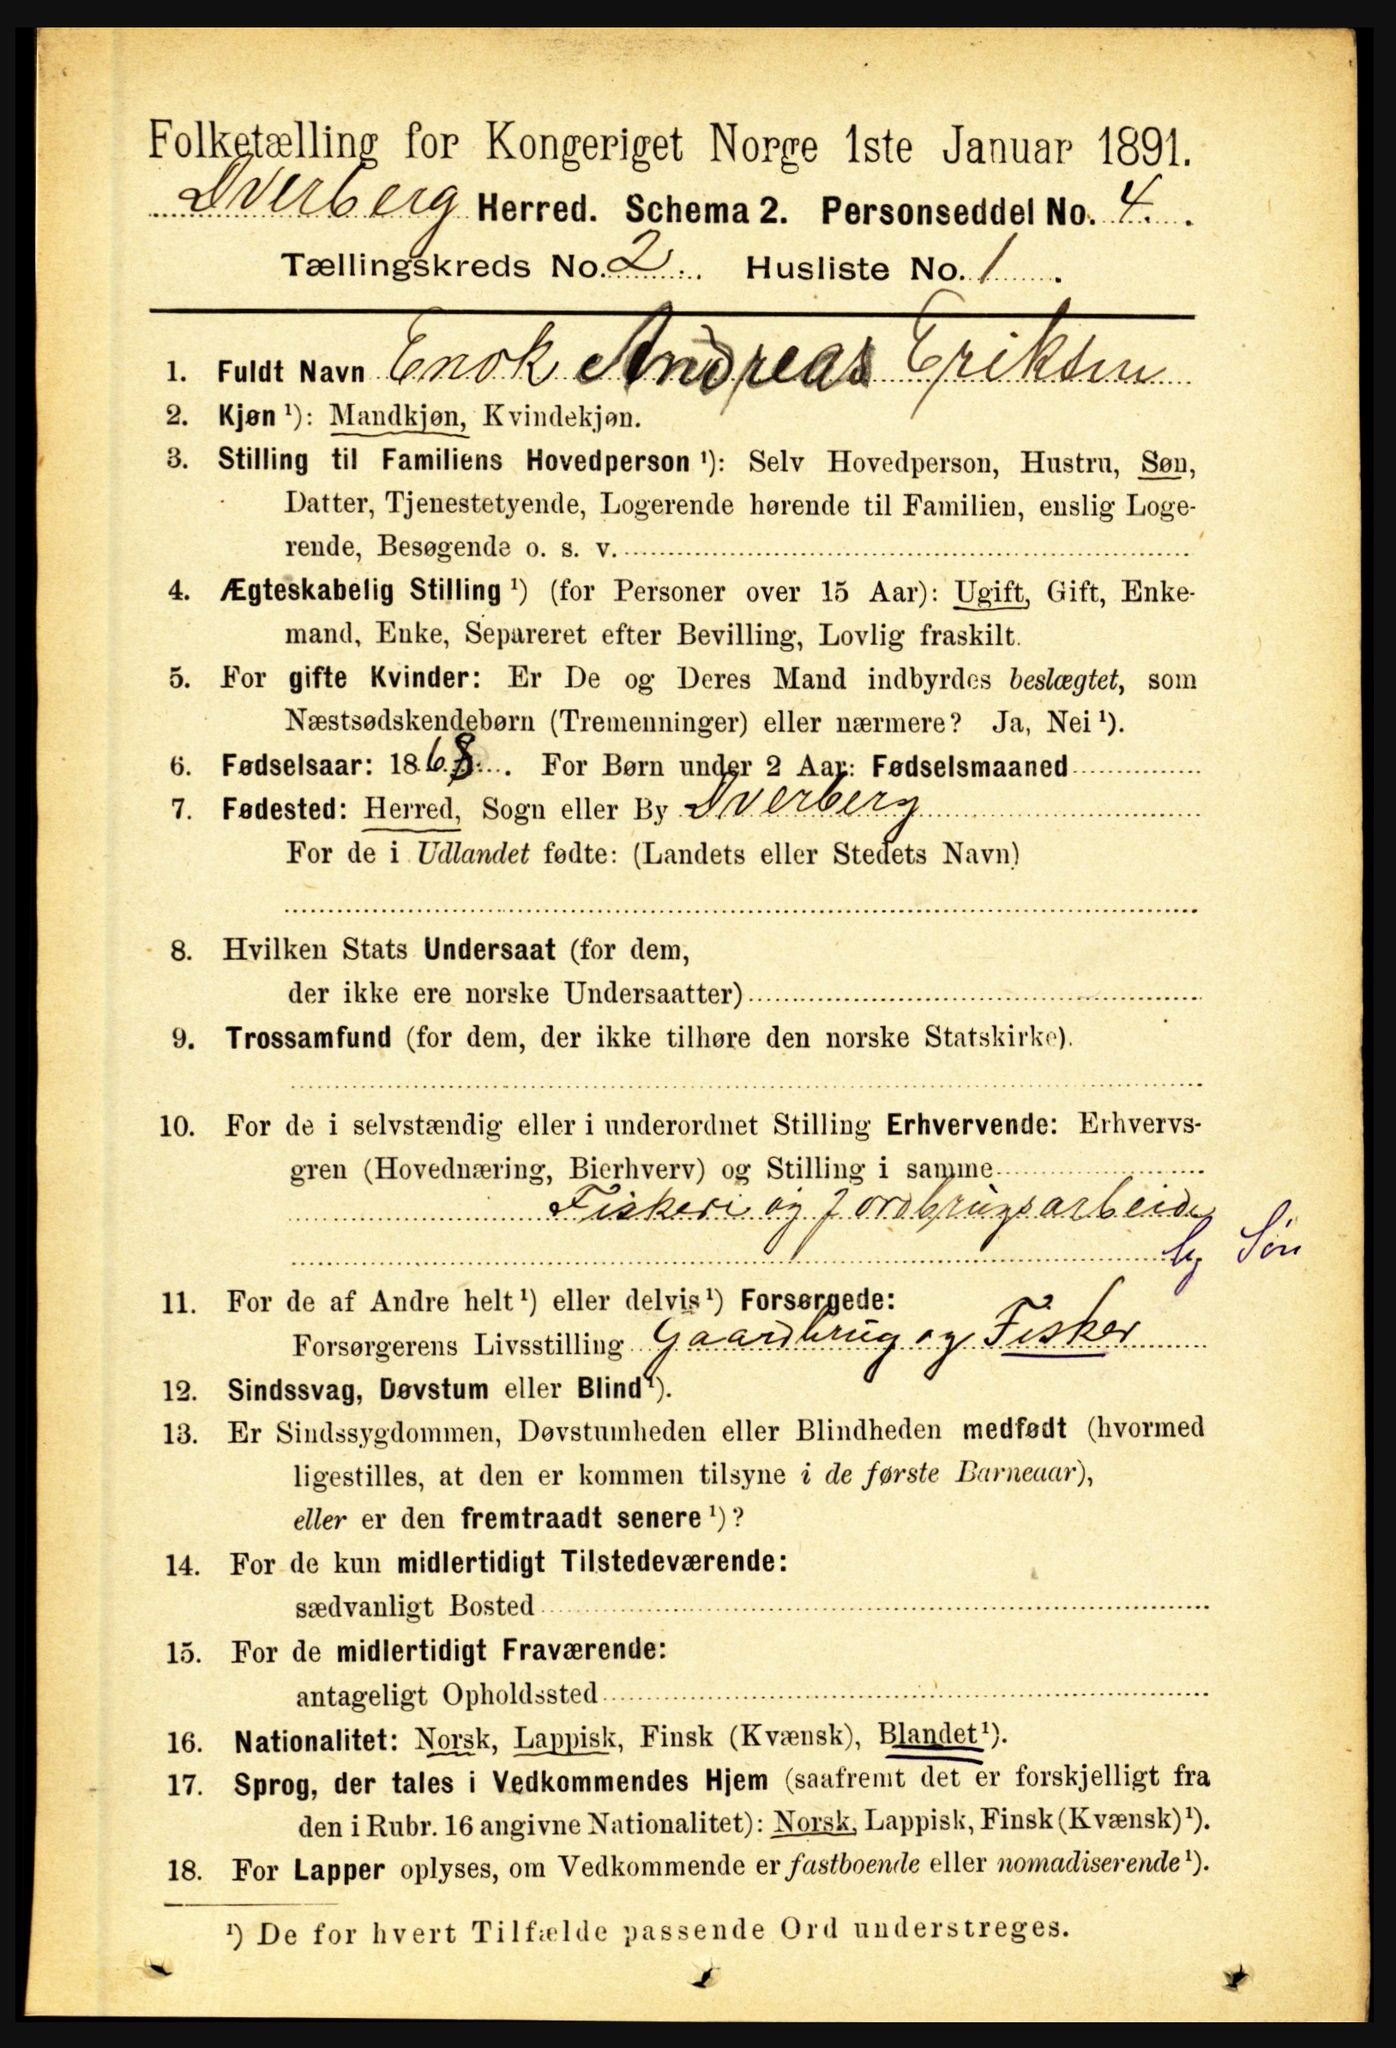 Folketælling for Kongeriget Norge 1ste Januar 1891.
Dverberg Herred. Schema 2. Personseddel No. 4.
Tællingskreds No. 2. Husliste No. 1.
1. Fuldt Navn Enok Andreas Eriksen
2. Kjøn ¹): Mandkjøn, Kvindekjøn.
3. Stilling til Familiens Hovedperson ¹): Selv Hovedperson, Hustru, Søn,
Datter, Tjenestetyende, Logerende hørende til Familien, enslig Loge-
rende, Besøgende o. s. v.
4. Ægteskabelig Stilling ¹) (for Personer over 15 Aar): Ugift, Gift, Enke-
mand, Enke, Separeret efter Bevilling, Lovlig fraskilt.
5. For gifte Kvinder: Er De og Deres Mand indbyrdes beslægtet, som
Næstsødskendebørn (Tremenninger) eller nærmere? Ja, Nei ¹).
6. Fødselsaar: 1868. For Børn under 2 Aar: Fødselsmaaned
7. Fødested: Herred, Sogn eller By Dverberg
For de i Udlandet fødte: (Landets eller Stedets Navn)
8. Hvilken Stats Undersaat (for dem,
der ikke ere norske Undersaatter)
9. Trossamfund (for dem, der ikke tilhøre den norske Statskirke).
10. For de i selvstændig eller i underordnet Stilling Erhvervende: Erhvervs-
gren (Hovednæring, Bierhverv) og Stilling i samme
Fiskeri og Jordbrugsarbeide
Søn
11. For de af Andre helt ¹) eller delvis ¹) Forsørgede:
Forsørgerens Livsstilling Gaardbrug og Fisker
12. Sindssvag, Døvstum eller Blind ¹).
13. Er Sindssygdommen, Døvstumheden eller Blindheden medfødt (hvormed
ligestilles, at den er kommen tilsyne i de første Barneaar),
eller er den fremtraadt senere ¹)?
14. For de kun midlertidigt Tilstedeværende:
sædvanligt Bosted
15. For de midlertidigt Fraværende:
antageligt Opholdssted
16. Nationalitet: Norsk, Lappisk, Finsk (Kvænsk), Blandet ¹).
17. Sprog, der tales i Vedkommendes Hjem (saafremt det er forskjelligt fra
den i Rubr. 16 angivne Nationalitet): Norsk, Lappisk, Finsk (Kvænsk) ¹).
18. For Lapper oplyses, om Vedkommende er fastboende eller nomadiserende ¹).
¹) De for hvert Tilfælde passende Ord understreges.